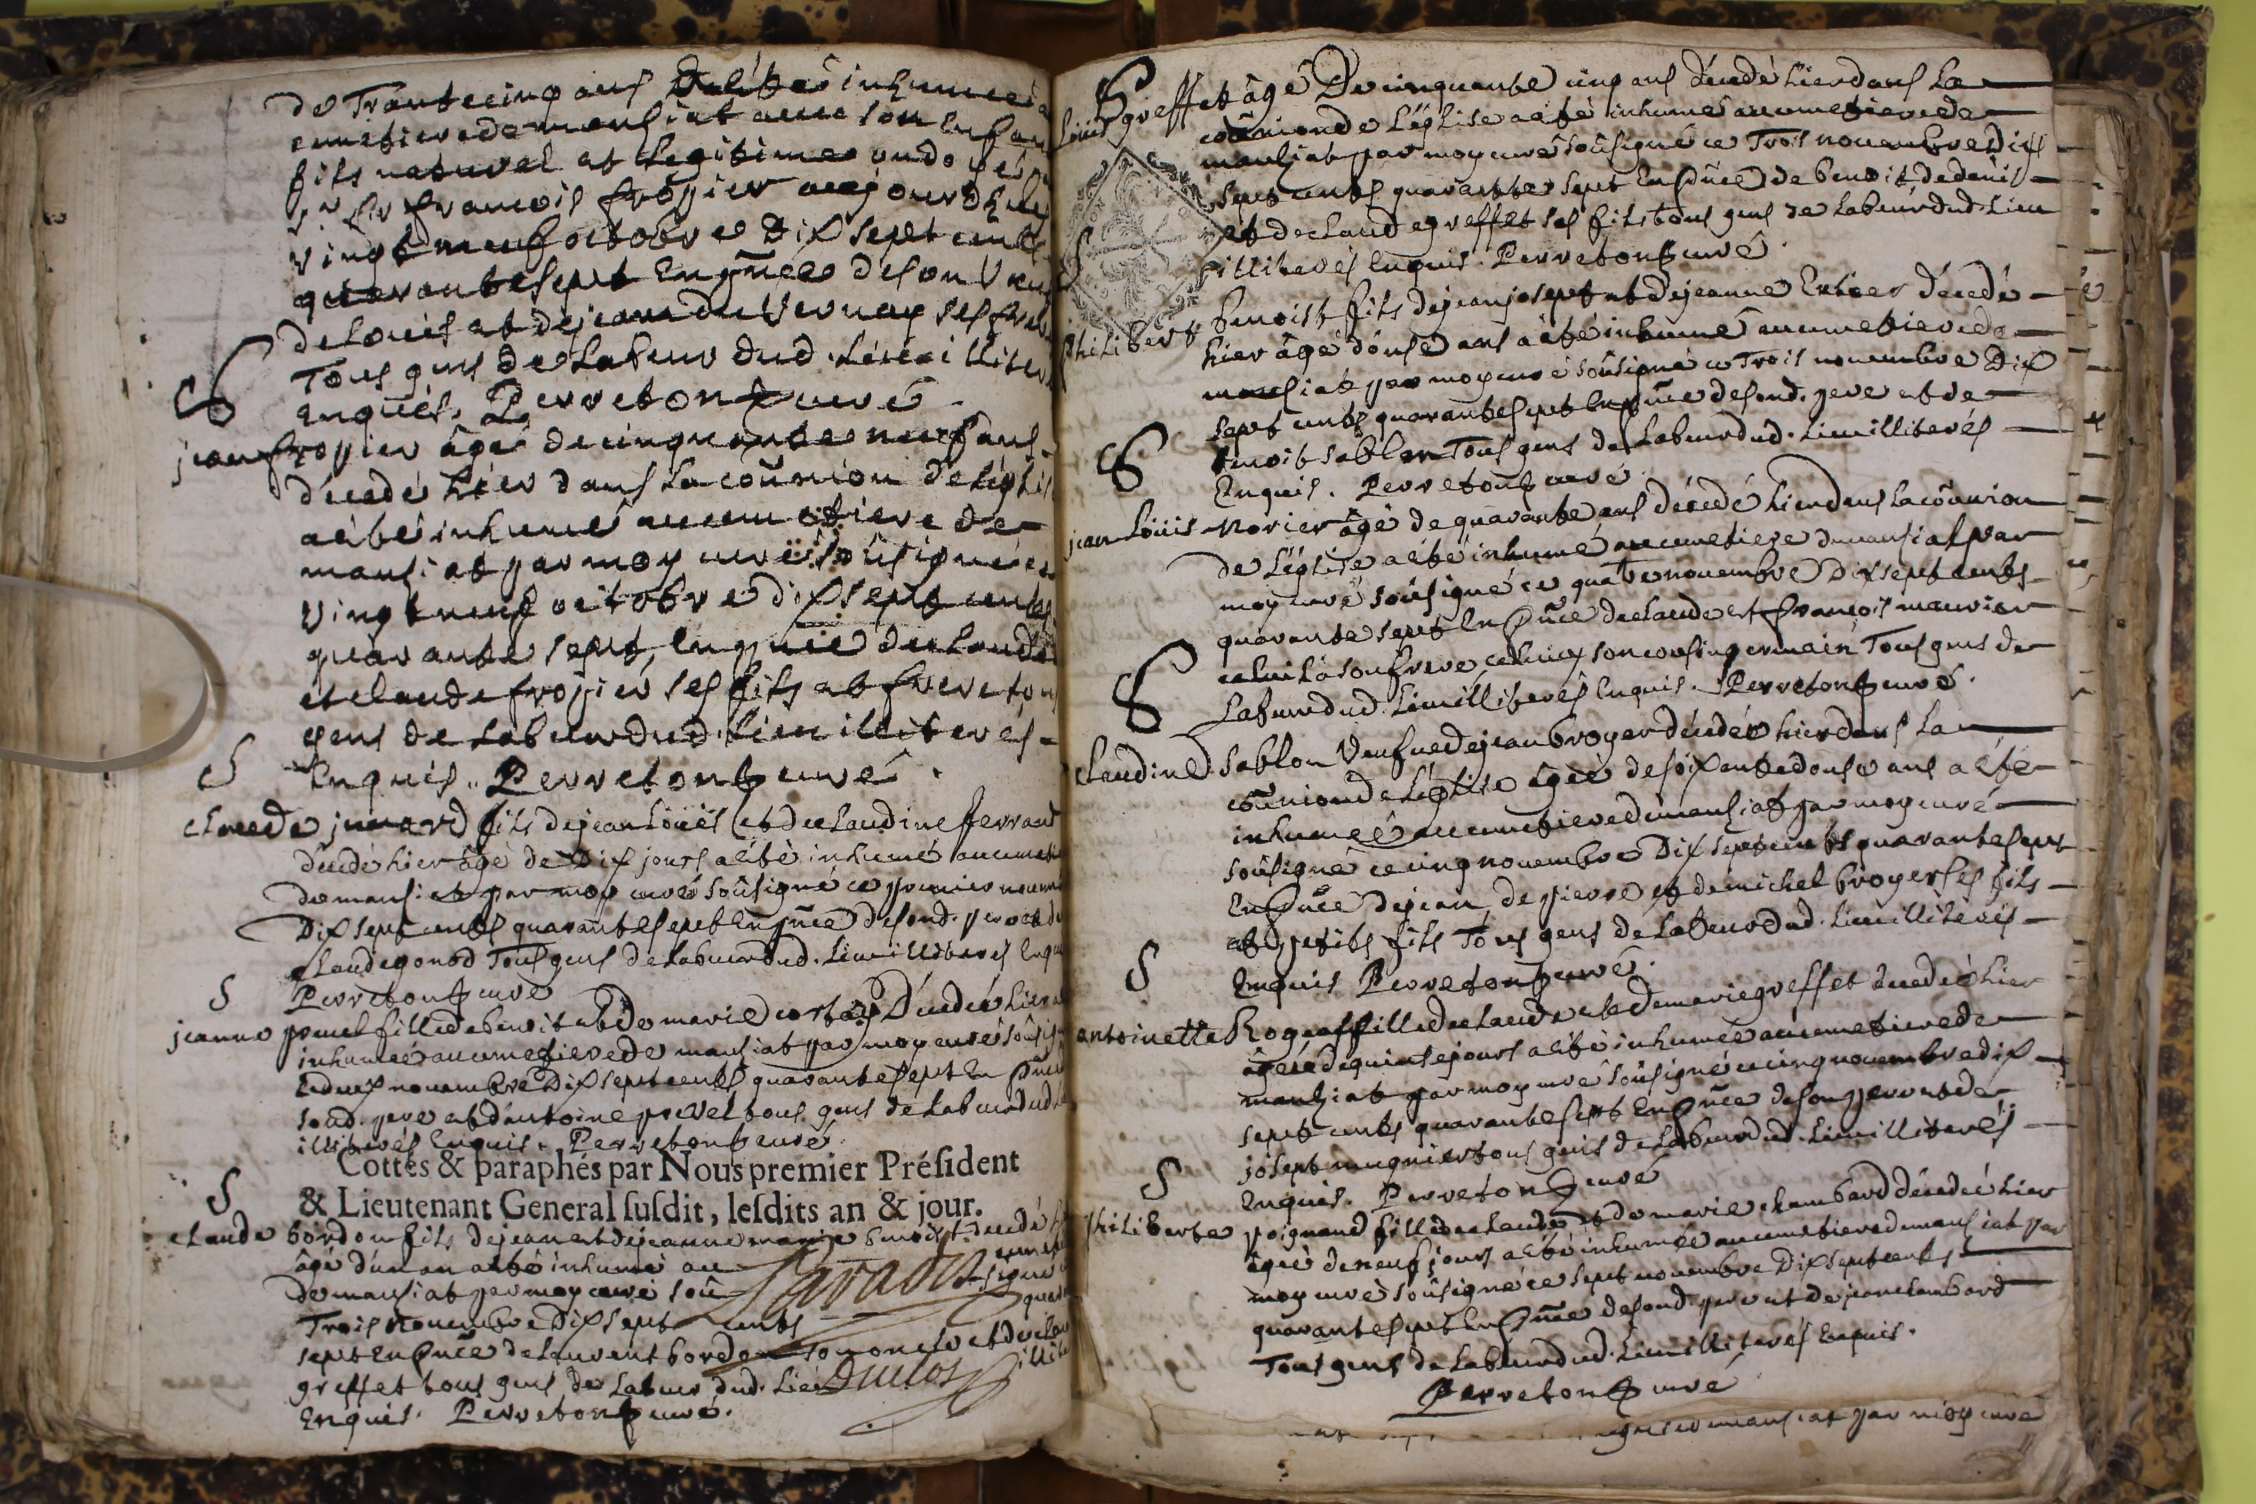 de Trante cinq ans a été inhumée
cemetiere de mansiat avec son enfan
fils naturel et Legitime ondoyé
Sr françois frojier aujourdhuy
vingt neuf octobre Dix sept cents
quarante sept En pñce de son
de Loüis et de jean du Vernay ses freres
Tous gens de Labeur dud. Lieu illiter
enquis. Perreton curé
jean frojier âgé de cinquante neuf ans
décedé hier dans la com̃union de léglis
a été inhumé au cemetiere de
mansiat par moy curé soûsigné ce
vingt neuf octobre dix sept cents
quarante sept, En pñce de claude
et claude frojier ses fils et frere tous
gens de Labeur dud. Lieu illiterés
Enquis. Perreton curé
claude juuard fils de jean Loüis et de claudine ferrand
décedé hier âgé de Dix jours a été inhumé au cemeti
de mansiat par moy curé soûsigné ce premier novem
Dix sept cents quarante sept En pñce de sond. pere et de
claude gonod Tous gens de Labeur dud. Lieu illiterés Enqu
Perreton curé
jeanne preuel fille de benoit et de marie cortay Décedée hier
inhumée au cemetiere de mansiat par moy curé soûsig
Le deux novembre Dix sept cents quarante sept En pñce
sond. pere et d'antoine preuel tous gens de Labeur dud.
illiterés Enquis. Perreton curé
Cottés & paraphés par Nous premier Président
& Lieutenant General susdit, lesdits an & jour.
claude bordon fils de jean et de jeanne marie benoist décedé
âgé d'un an a été inhumé au cemeti
de mansiat par moy curé soû signé
Trois novembre Dix sept cents quara
sept En pñce de Laurent bordon son oncle et de clau
greffet tous gens de Labeur dud. Lieu illite
Enquis. Perreton curé.
Duclos
Loüis greffet âgé De cinquante cinq ans décedé hier dans La
com̃union de L'église a été inhumé au cemetiere de
mansiat par moy curé soûsigné ce Trois novembre Dix
sept cents quarante sept En pñce de benoit de denis
et de claude greffet ses fils tous gens de Labeur dud. Lieu
illiterés Enquis. Perreton curé
philibert benoist fils de jean josept et de jeanne décedé
hier âgé d'onse ans a été inhumé au cemetiere de
mansiat par moy curé soûsigné ce Trois novembre Dix
sept cents quarante sept En pñce de sond. pere et de
benoit sablon Tous gens de Labeur dud. Lieu illiterés
Enquis. Perreton curé
jean Loüis morier âgé de quarante ans décedé hier dans la com̃union
de L'église a été inhumé au cemetiere de mansiat par
moy curé soûsigné ce quatre novembre Dix sept cents
quarante sept En pñce de claude et françois maurier
celui là son frere celuicy son cousin germain Tous gens de
Labeur dud. Lieu illiterés Enquis. Perreton curé.
claudine sablon Veufue de jean broyer décedée hier dans La
com̃union de L'église âgée de soixante douse ans a été
inhumeé au cemetiere de mansiat par moy curé
soûsigné ce cinq novembre Dix sept cents quarante sept
En pñce de jean, de pierre et de michel broyer ses fils
et petits fils Tous gens de Labeur dud. Lieu illiterés
Enquis Perreton curé.
antoinette Rognaff fille de claude et de marie greffet decedeé hier
âgeé de quinse jours a été inhumée au cemetiere de
mansiat par moy curé soûsigné ce cinq novembre dix
sept cents quarante sept En pñce de son pere et de
josept mugnier tous gens de Labeur dud. Lieu illiterés
Enquis. Perreton curé
philiberte poignand fille de claude et de marie chambard décedeé hier
âgée de neuf jours a été inhumée au cemetiere de mansiat par
moy curé soûsigné ce sept novembre Dix sept cents
quarante sept En pñce de sond. pere et de jean chambard
Tous gens de Labeur dud. Lieu illiterés Enquis.
Perreton curé
mansiat par moy curé